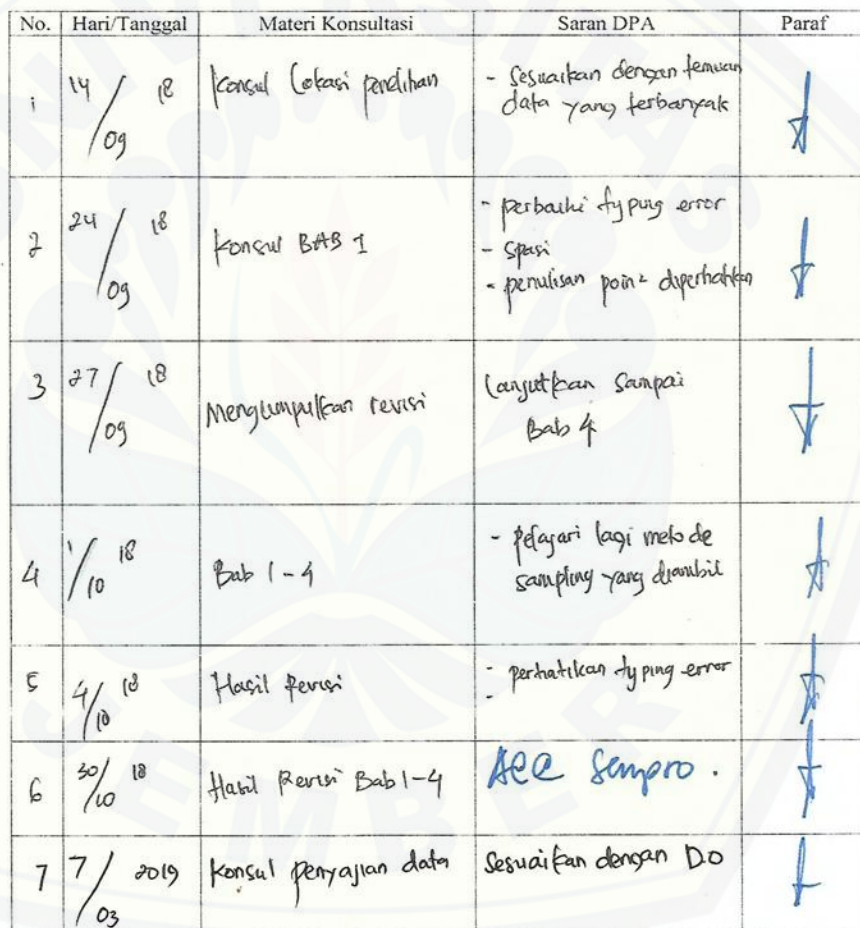 No. Hari/Tanggal Materi Konsultasi Saran DPA Paraf
1 14/09 18 Konsul Lokasi penelitian - Sesuaikan dengan temuan
data yang terbanyak
2 24/09 18 Konsul BAB 1 - perbaiki typing error
- Spasi
- penulisan poin² diperhatikan
3 27/09 18 Mengumpulkan revisi Lanjutkan Sampai
Bab 4
4 1/10 18 Bab 1-4 - pelajari lagi metode
sampling yang diambil
5 4/10 18 Hasil Revisi - perhatikan typing error
-
6 30/10 18 Hasil Revisi Bab 1-4 ACC Sempro.
7 7/03 2019 Konsul penyajian data Sesuaikan dengan D.O
UNIVERSITAS
JEMBER